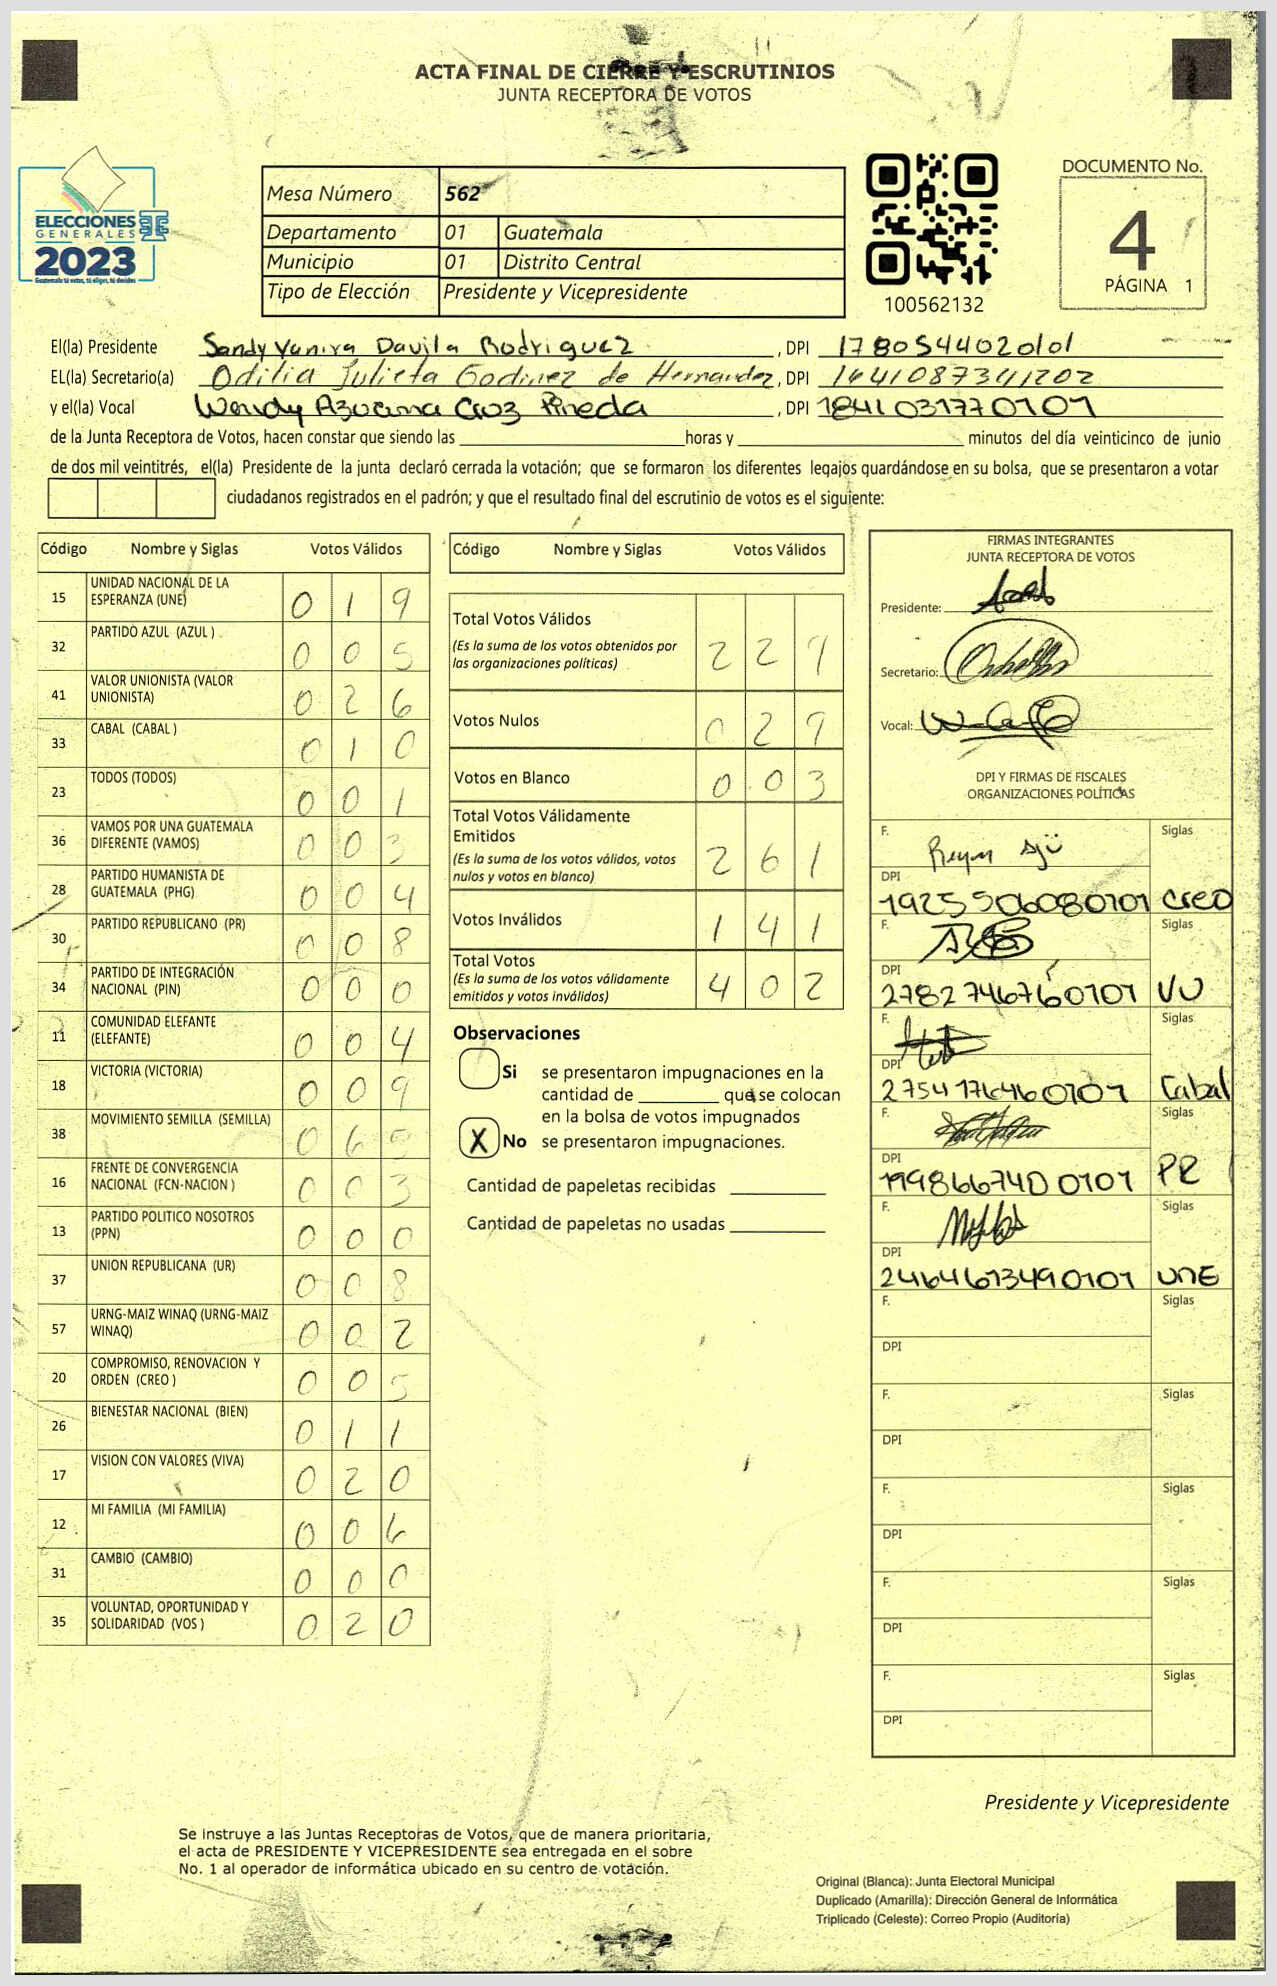 ACTA FINAL DE CIERRE Y ESCRUTINIOS
JUNTA RECEPTORA DE VOTOS
ELECCIONES
GENERALES
2023
Guatemala tú votas, tú eliges, tú decides
Mesa Número 562
Departamento 01 Guatemala
Municipio 01 Distrito Central
Tipo de Elección Presidente y Vicepresidente
100562132
DOCUMENTO No.
4
PÁGINA 1
El(la) Presidente Sandy Yanira Davila Rodriguez, DPI 1780544020101
EL(la) Secretario(a) Odilia Julieta Godinez de Hernandez, DPI 1641087341202
y el(la) Vocal Wendy Azucena Cruz Pineda, DPI 1841031770101
de la Junta Receptora de Votos, hacen constar que siendo las ____ horas y ____ minutos del día veinticinco de junio
de dos mil veintitrés, el(la) Presidente de la junta declaró cerrada la votación; que se formaron los diferentes legajos guardándose en su bolsa, que se presentaron a votar
ciudadanos registrados en el padrón; y que el resultado final del escrutinio de votos es el siguiente:
Código Nombre y Siglas Votos Válidos
15 UNIDAD NACIONAL DE LA ESPERANZA (UNE) 0 1 9
32 PARTIDO AZUL (AZUL ) 0 0 5
41 VALOR UNIONISTA (VALOR UNIONISTA) 0 2 6
33 CABAL (CABAL ) 0 1 0
23 TODOS (TODOS) 0 0 1
36 VAMOS POR UNA GUATEMALA DIFERENTE (VAMOS) 0 0 3
28 PARTIDO HUMANISTA DE GUATEMALA (PHG) 0 0 4
30 PARTIDO REPUBLICANO (PR) 0 0 8
34 PARTIDO DE INTEGRACIÓN NACIONAL (PIN) 0 0 0
11 COMUNIDAD ELEFANTE (ELEFANTE) 0 0 4
18 VICTORIA (VICTORIA) 0 0 9
38 MOVIMIENTO SEMILLA (SEMILLA) 0 6
16 FRENTE DE CONVERGENCIA NACIONAL (FCN-NACION ) 0 0 3
13 PARTIDO POLITICO NOSOTROS (PPN) 0 0 0
37 UNION REPUBLICANA (UR) 0 0 8
57 URNG-MAIZ WINAQ (URNG-MAIZ WINAQ) 0 0 2
20 COMPROMISO, RENOVACION Y ORDEN (CREO ) 0 0 5
26 BIENESTAR NACIONAL (BIEN) 0 1 1
17 VISION CON VALORES (VIVA) 0 2 0
12 MI FAMILIA (MI FAMILIA) 0 0 6
31 CAMBIO (CAMBIO) 0 0 0
35 VOLUNTAD, OPORTUNIDAD Y SOLIDARIDAD (VOS ) 0 2 0
Código Nombre y Siglas Votos Válidos
Total Votos Válidos 2 2 9
(Es la suma de los votos obtenidos por
las organizaciones políticas)
Votos Nulos 0 2 9
Votos en Blanco 0 0 3
Total Votos Válidamente
Emitidos 2 6 1
(Es la suma de los votos válidos, votos
nulos y votos en blanco)
Votos Inválidos 1 4 1
Total Votos 4 0 2
(Es la suma de los votos válidamente
emitidos y votos inválidos)
Observaciones
Si se presentaron impugnaciones en la
cantidad de ____ que se colocan
en la bolsa de votos impugnados
X No se presentaron impugnaciones.
Cantidad de papeletas recibidas
Cantidad de papeletas no usadas
FIRMAS INTEGRANTES
JUNTA RECEPTORA DE VOTOS
Presidente:
Secretario:
Vocal:
DPI Y FIRMAS DE FISCALES
ORGANIZACIONES POLÍTICAS
F. Siglas
DPI
1925506080101 CREO
F. Siglas
DPI
2782746760101 VU
F. Siglas
DPI
2754176460101 Cabal
F. Siglas
DPI
1998667400101 PR
F. Siglas
DPI
2464613490101 UNE
F. Siglas
DPI
F. Siglas
DPI
F. Siglas
DPI
F. Siglas
DPI
F. Siglas
DPI
Presidente y Vicepresidente
Se instruye a las Juntas Receptoras de Votos, que de manera prioritaria,
el acta de PRESIDENTE Y VICEPRESIDENTE sea entregada en el sobre
No. 1 al operador de informática ubicado en su centro de votación.
Original (Blanca): Junta Electoral Municipal
Duplicado (Amarilla): Dirección General de Informática
Triplicado (Celeste): Correo Propio (Auditoría)